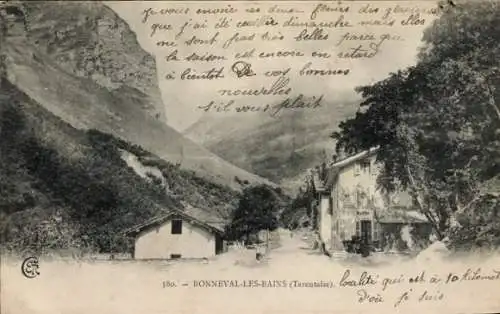 je vous envoie de deux fleurs des
que j'ai été cueillir dimanche mais elles
ne sont pas très belles parce
que la saison est encore en retard
à bientôt de vos bonnes
nouvelles
s.v.b. plait
580. - BONNEVAL-LES-BAINS (Tarentaise).
localité qui est à 10 kilomet
d'où je suis